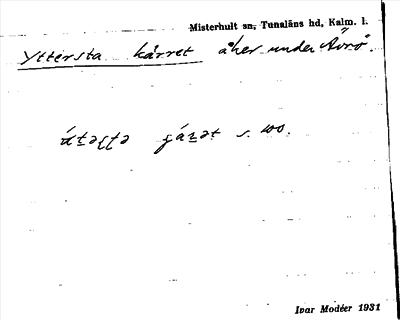 Misterhult sn, Tunaläns hd, Kalm. l.
Yttersta kärret åker under Ävrö.
s. wo.
Ivar Modéer 1931